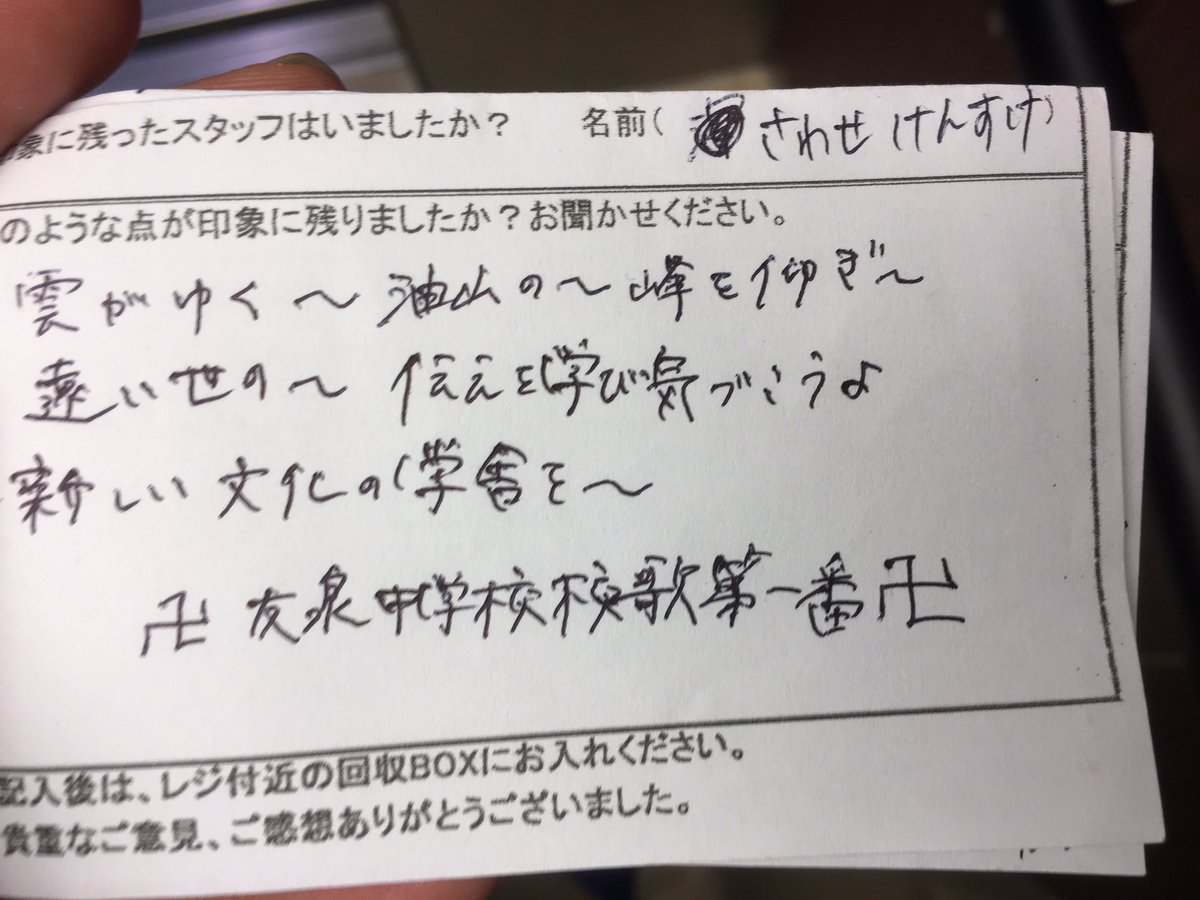 象に残ったスタッフはいましたか? 名前( さわせ けんすけ)
のような点が印象に残りましたか?お聞かせください。
雲がゆく〜油山の〜峰を仰ぎ〜
遠い世の〜 伝えを学び気づこうよ
新しい文化の学舎を〜
卍 友泉中学校校歌第一番 卍
記入後は、レジ付近の回収BOXにお入れください。
貴重なご意見、ご感想ありがとうございました。